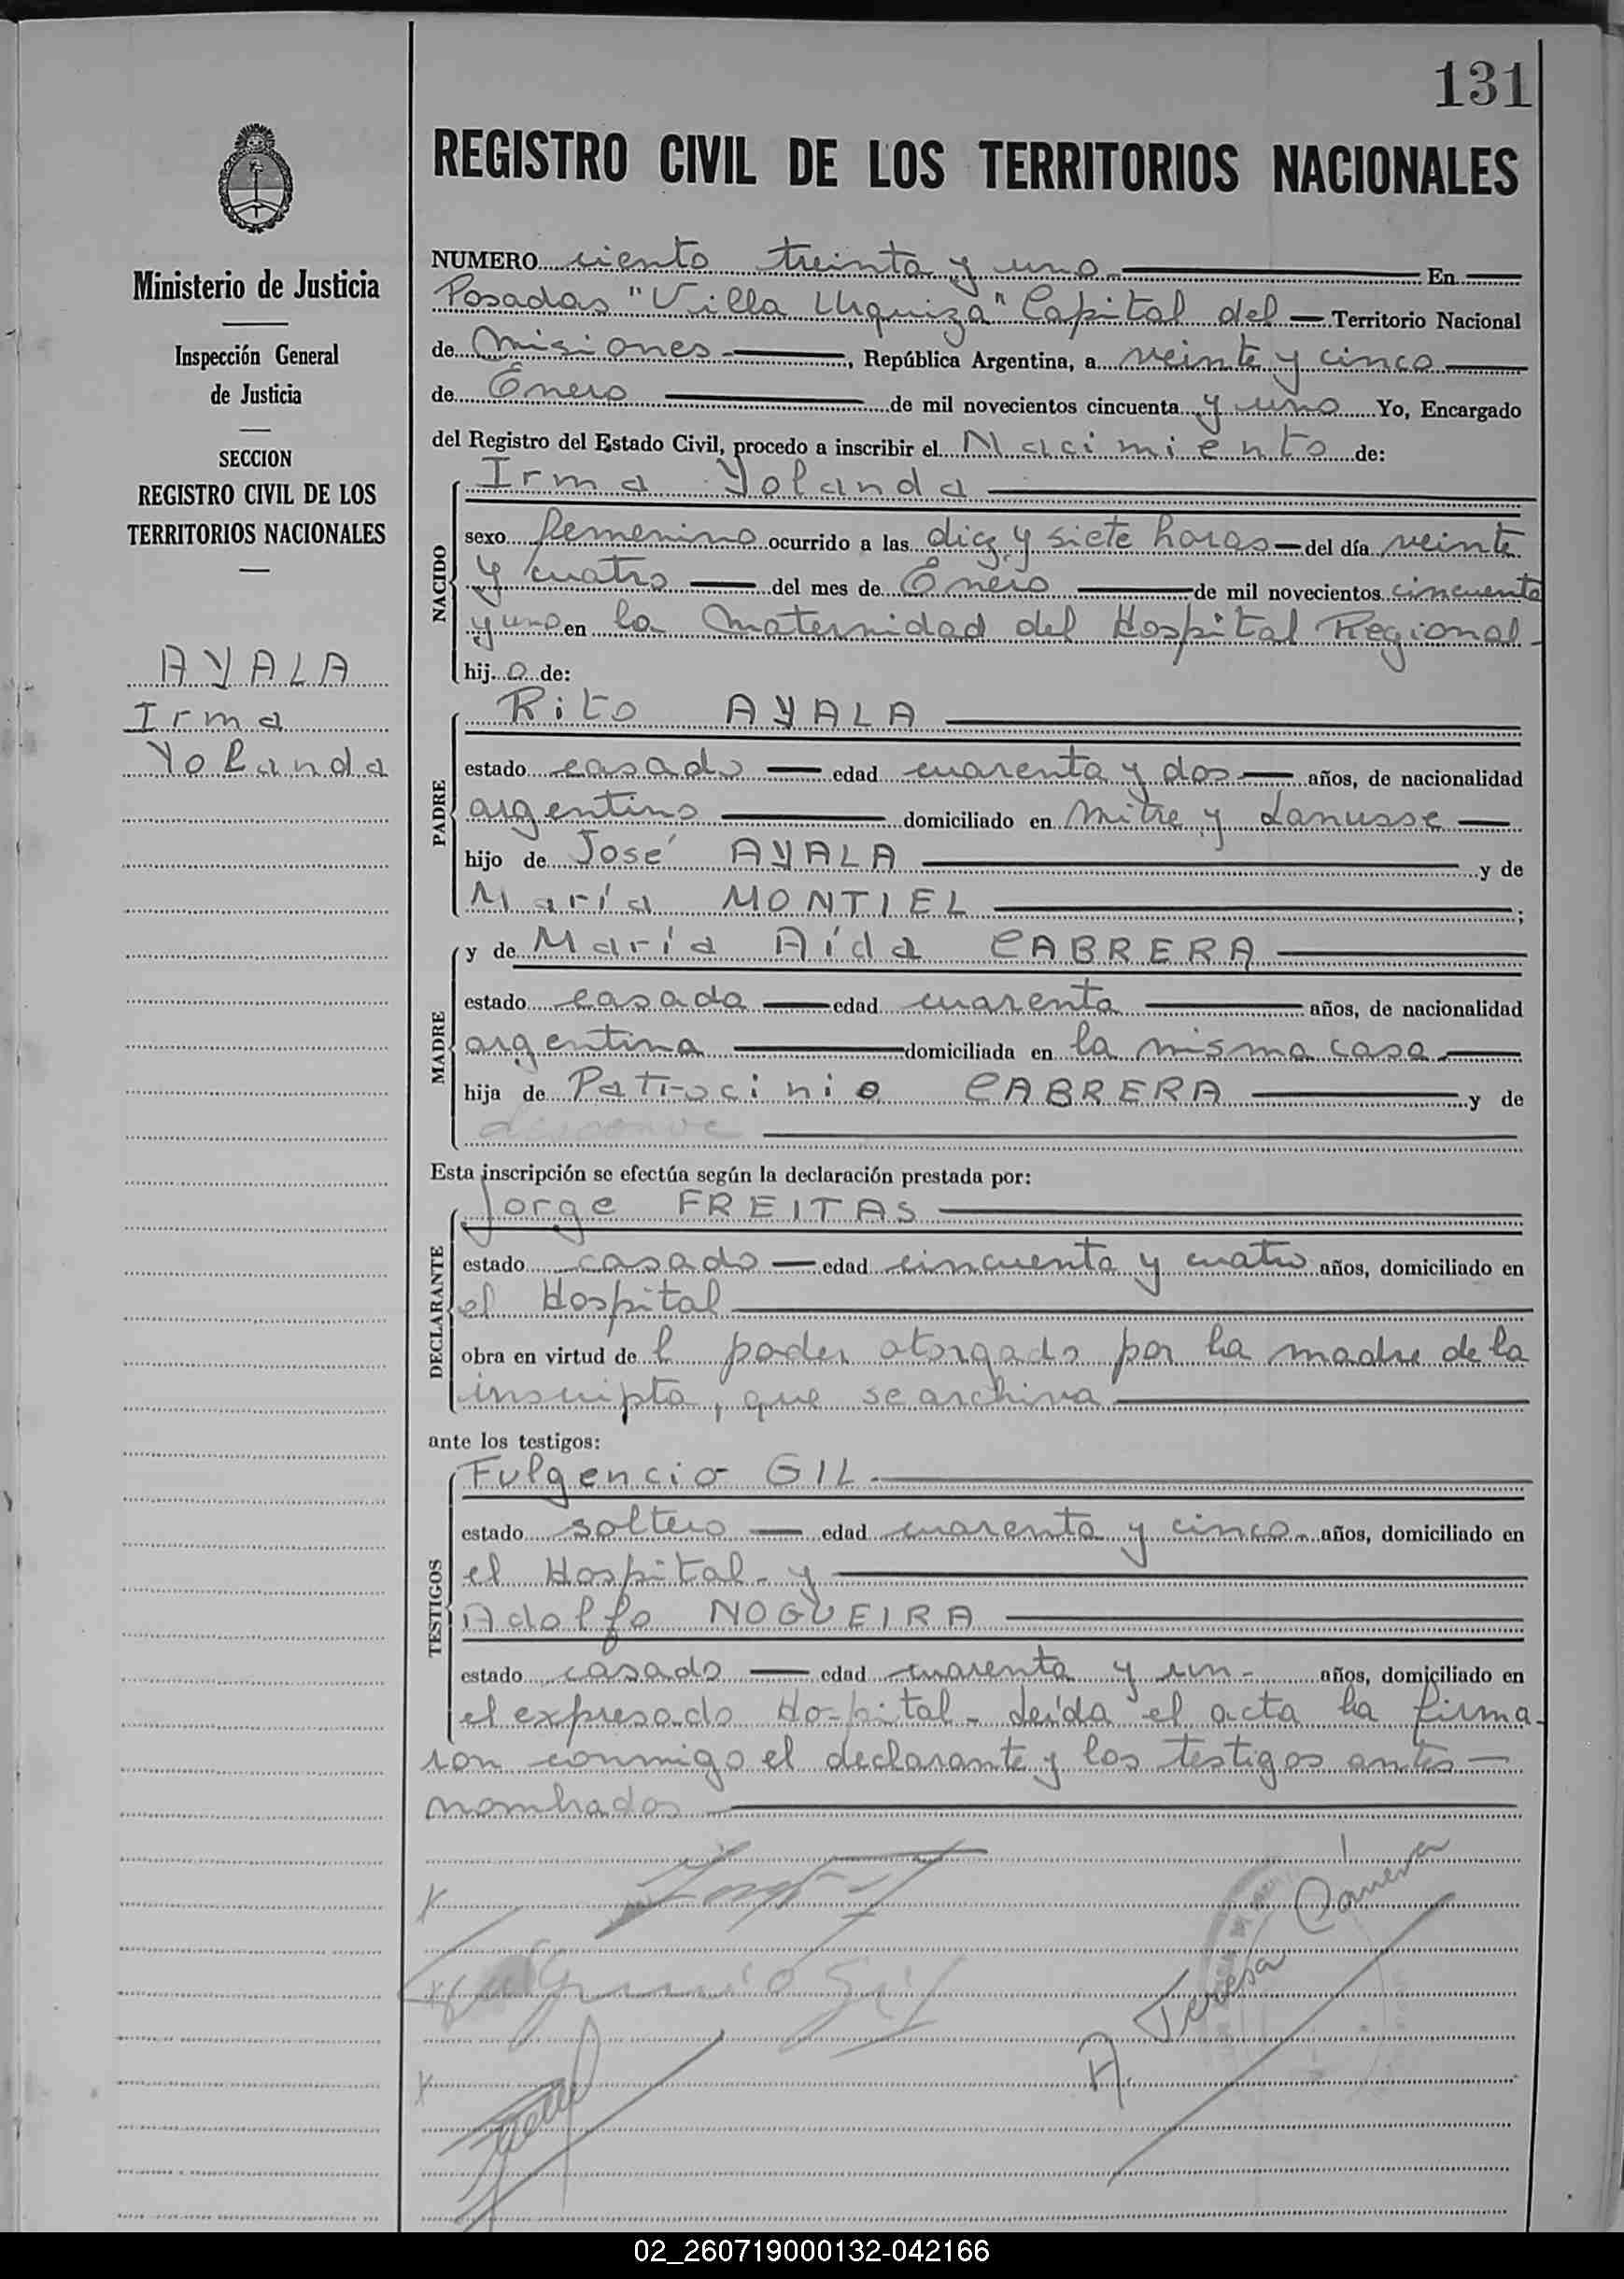 131
REGISTRO CIVIL DE LOS TERRITORIOS NACIONALES
Ministerio de Justicia
Inspección General
de Justicia
SECCION
REGISTRO CIVIL DE LOS
TERRITORIOS NACIONALES
AYALA
Irma
Yolanda
NUMERO ciento treinta y uno En
Posadas "Villa Urquiza" Capital del Territorio Nacional
de Misiones, República Argentina, a veinte y cinco
de Enero de mil novecientos cincuenta y uno Yo, Encargado
del Registro del Estado Civil, procedo a inscribir el Nacimiento de:
NACIDO
Irma Yolanda
sexo femenino ocurrido a las diez y siete horas del día veinte
y cuatro del mes de Enero de mil novecientos cincuenta
y uno en la Maternidad del Hospital Regional
hij a de:
PADRE
Rito AYALA
estado casado edad cuarenta y dos años, de nacionalidad
argentino domiciliado en Mitre y Lanusse
hijo de José AYALA y de
María MONTIEL ;
MADRE
y de María Aída CABRERA
estado casada edad cuarenta años, de nacionalidad
argentina domiciliada en la misma casa
hija de Patrocinio CABRERA y de
Esta inscripción se efectúa según la declaración prestada por:
DECLARANTE
Jorge FREITAS
estado casado edad cincuenta y cuatro años, domiciliado en
el Hospital
obra en virtud de l poder otorgado por la madre de la
inscripta, que se archiva
ante los testigos:
TESTIGOS
Fulgencio GIL
estado soltero edad cuarenta y cinco años, domiciliado en
el Hospital - y
Adolfo NOGUEIRA
estado casado edad cuarenta y un - años, domiciliado en
el expresado Hospital - Leída el acta la firma-
ron conmigo el declarante y los testigos antes
nombrados
Fulgencio Gil
A. Teresa
02_260719000132-042166